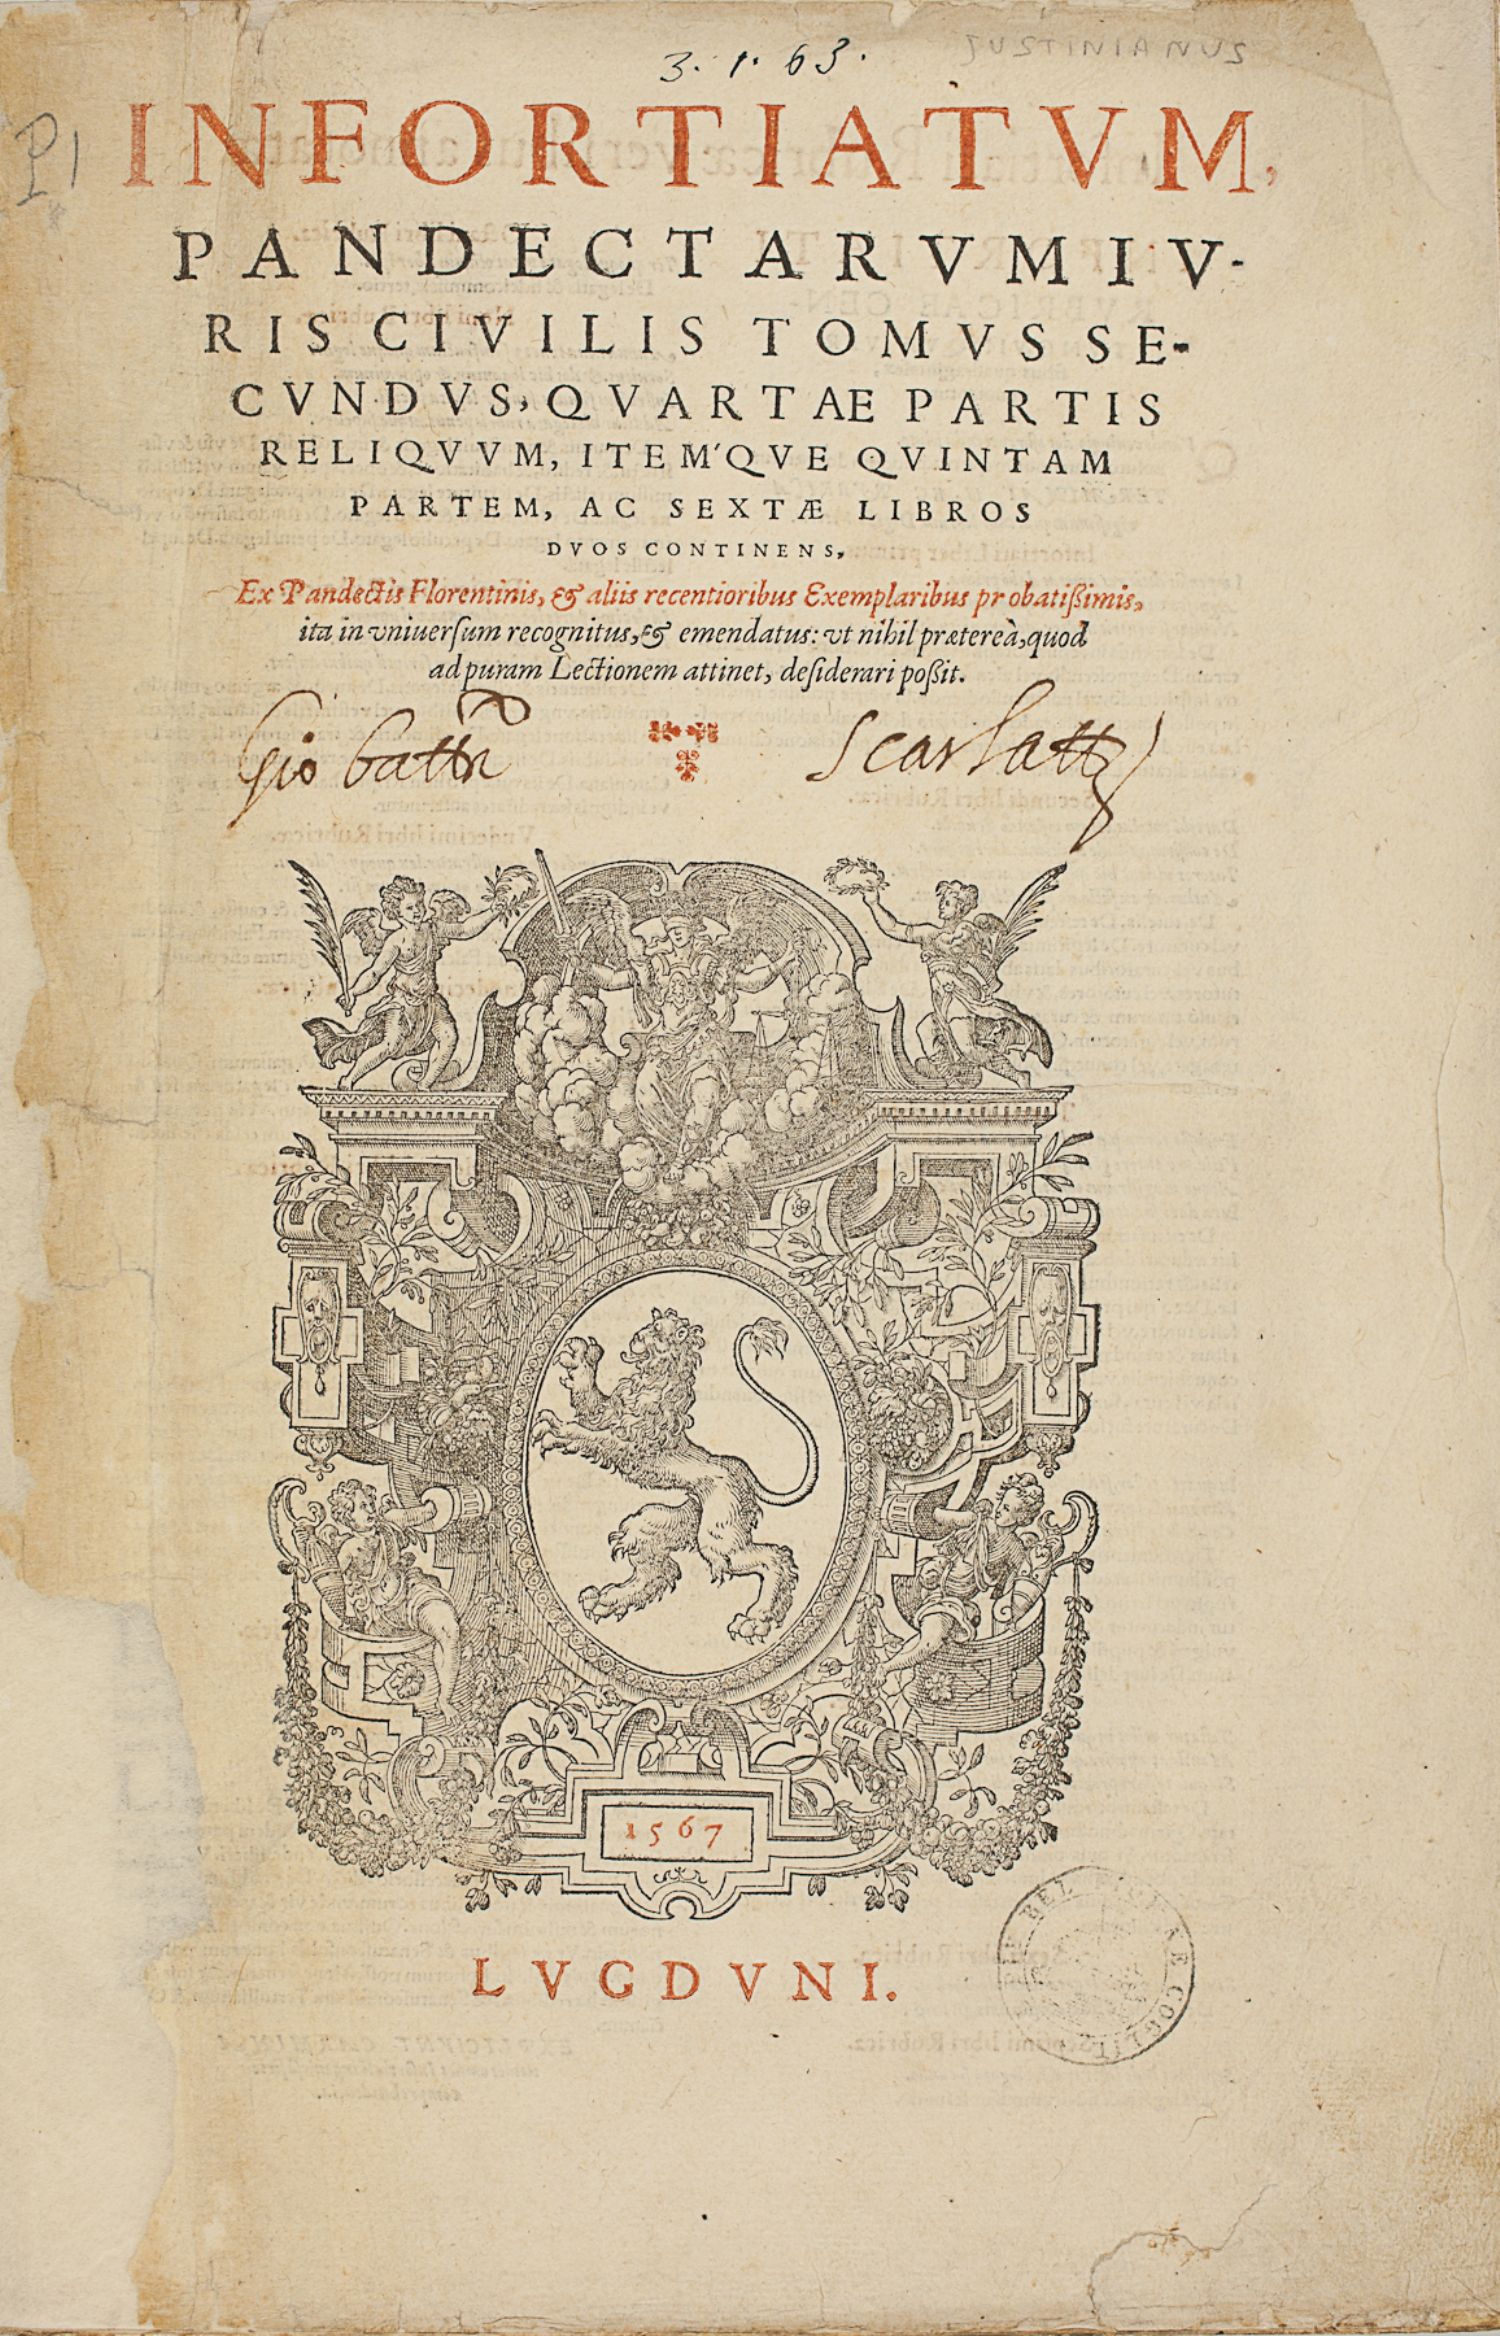 3. 1. 63.
JUSTINIANUS
P1
INFORTIATVM,
PANDECTARVM IV-
RIS CIVILIS TOMVS SE-
CVNDVS, QVARTAE PARTIS
RELIQVVM, ITEM'QVE QVINTAM
PARTEM, AC SEXTÆ LIBROS
DVOS CONTINENS,
Ex Pandectis Florentinis, & aliis recentioribus Exemplaribus probatißimis,
ita in vniuerſum recognitus, & emendatus: vt nihil prætereà, quod
ad puram Lectionem attinet, deſiderari poßit.
Gio batta Scarlatti
1567
LVGDVNI.